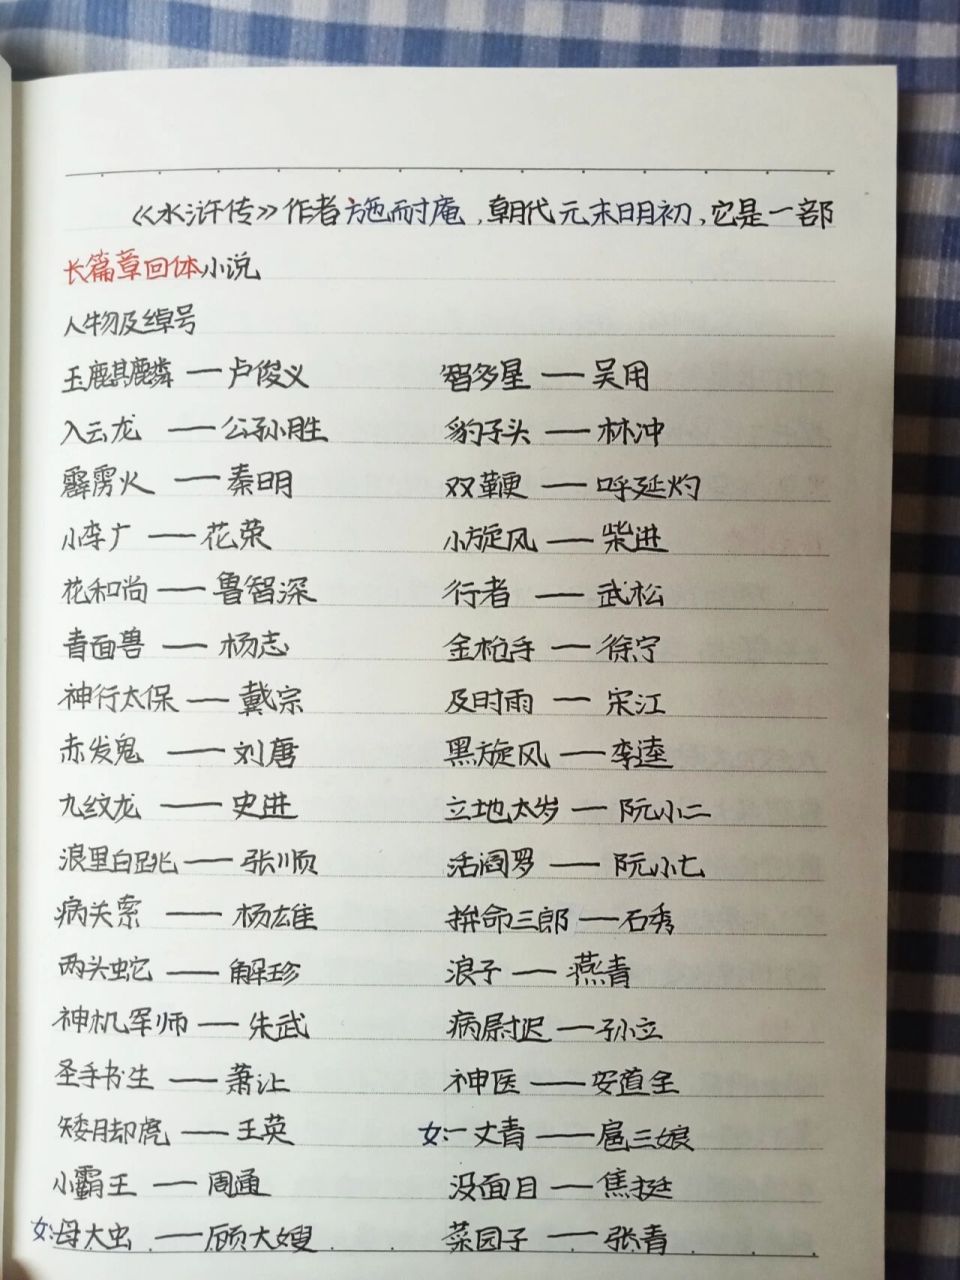 《水浒传》作者施耐庵,朝代元末明初,它是一部
长篇章回体小说
人物及绰号
玉麒麟——卢俊义 智多星——吴用
入云龙——公孙胜 豹子头——林冲
霹雳火——秦明 双鞭——呼延灼
小李广——花荣 小旋风——柴进
花和尚——鲁智深 行者——武松
青面兽——杨志 金枪手——徐宁
神行太保——戴宗 及时雨——宋江
赤发鬼——刘唐 黑旋风——李逵
九纹龙——史进 立地太岁——阮小二
浪里白跳——张顺 活阎罗——阮小七
病关索——杨雄 拚命三郎——石秀
两头蛇——解珍 浪子——燕青
神机军师——朱武 病尉迟——孙立
圣手书生——萧让 神医——安道全
矮脚虎——王英 女:一丈青——扈三娘
小霸王——周通 没面目——焦挺
女:母大虫——顾大嫂 菜园子——张青